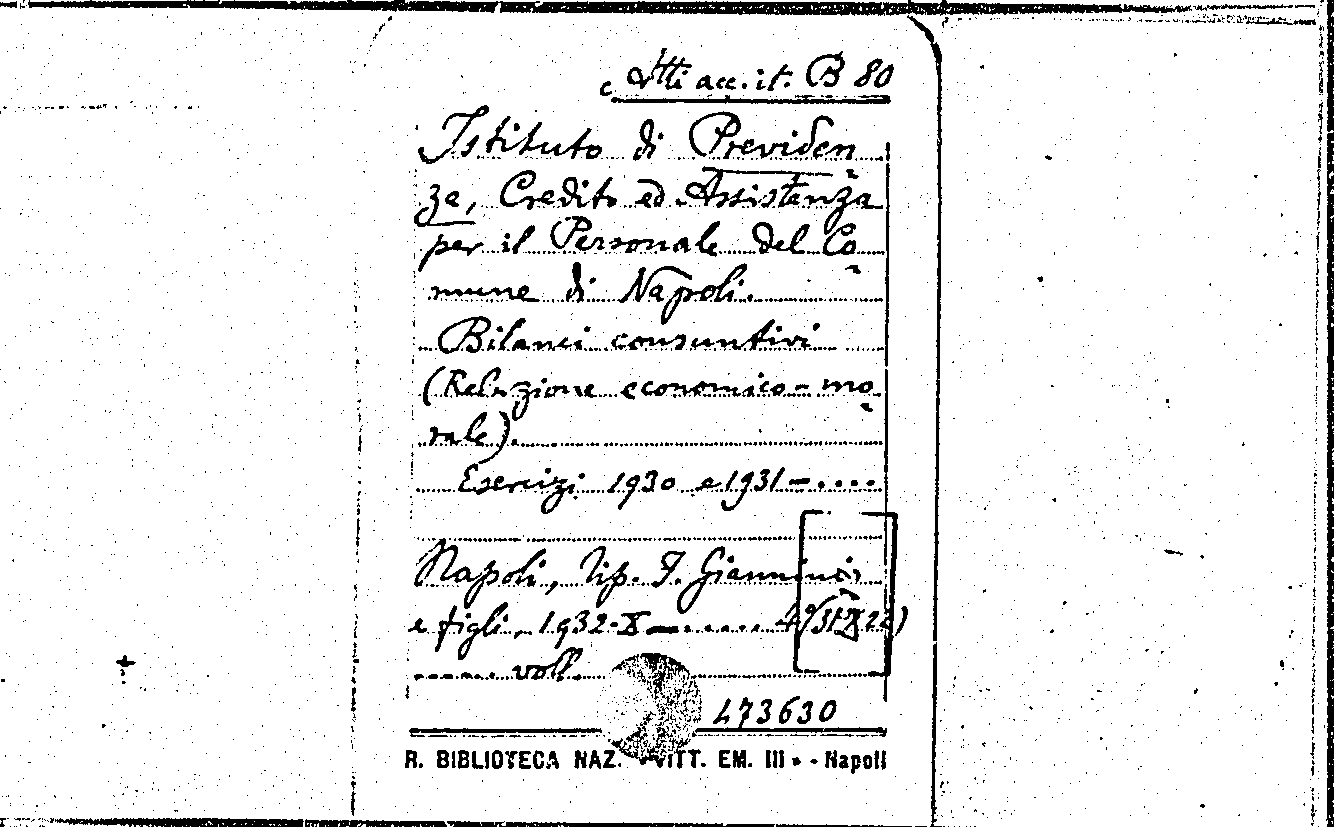 Atti acc. it. B 80
Istituto di Previden
ze, Credito ed Assistenza
per il Personale del Co
mune di Napoli.
Bilanci consuntivi
(Relazione economico-mo
rale).
Esercizi 1930 e 1931-....
Napoli, Tip. F. Giannini
e figli, 1932-X-.....
...... voll.
473630
R. BIBLIOTECA NAZ. VITT. EM. III - Napoli